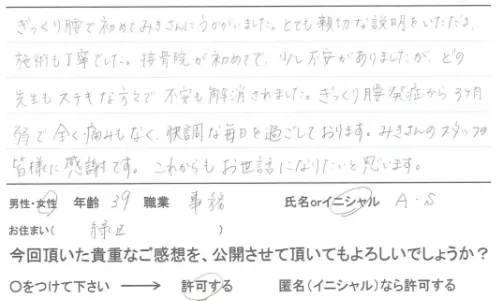 ぎっくり腰で初めてみきさんにうかがいました。とても親切な説明をいただき、
施術も丁寧でした。接骨院が初めてで、少し不安がありましたが、どの
先生もステキな方々で不安も解消されました。ぎっくり腰発症から3ヶ月
弱で全く痛みもなく、快調な毎日を過ごしております。みきさんのスタッフの
皆様に感謝です。これからもお世話になりたいと思います。
男性・女性 年齢 39 職業 事務 氏名orイニシャル A・S
お住まい( 緑区 )
今回頂いた貴重なご感想を、公開させて頂いてもよろしいでしょうか?
○をつけて下さい → 許可する 匿名(イニシャル)なら許可する